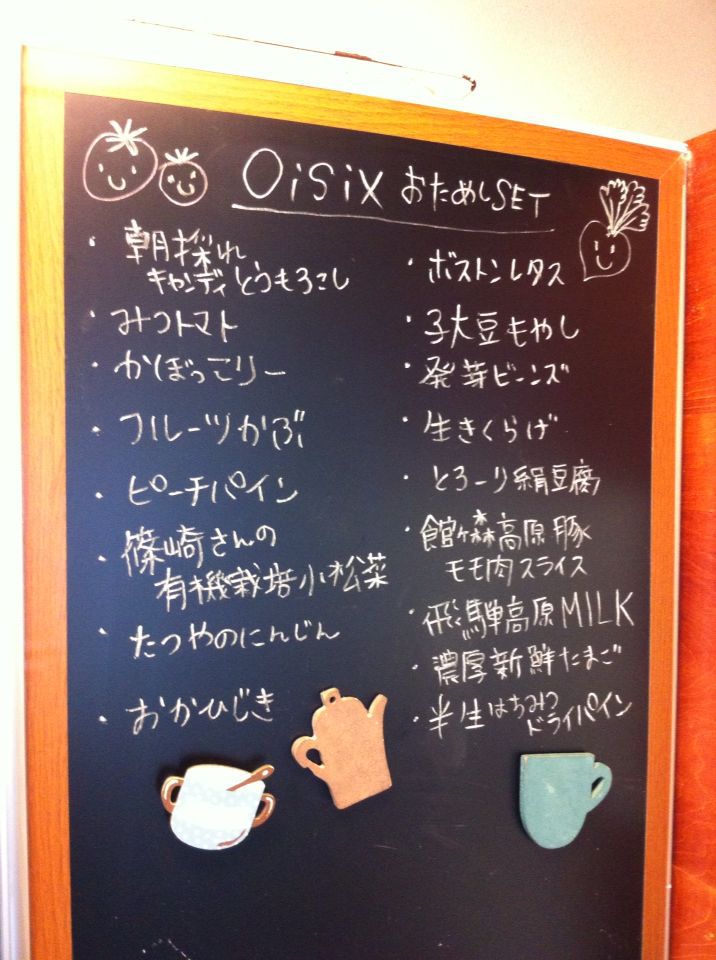 OiSiX おためしSET
・朝採れ
キャンディとうもろこし
・みつトマト
・かぼっこりー
・フルーツかぶ
・ピーチパイン
・篠崎さんの
有機栽培小松菜
・たつやのにんじん
・おかひじき
・ボストンレタス
・子大豆もやし
・発芽ビーンズ
・生きくらげ
・とろーり絹豆腐
・館ヶ森高原豚
モモ肉スライス
・飛騨高原MILK
・濃厚新鮮たまご
・半生はちみつ
ドライパイン